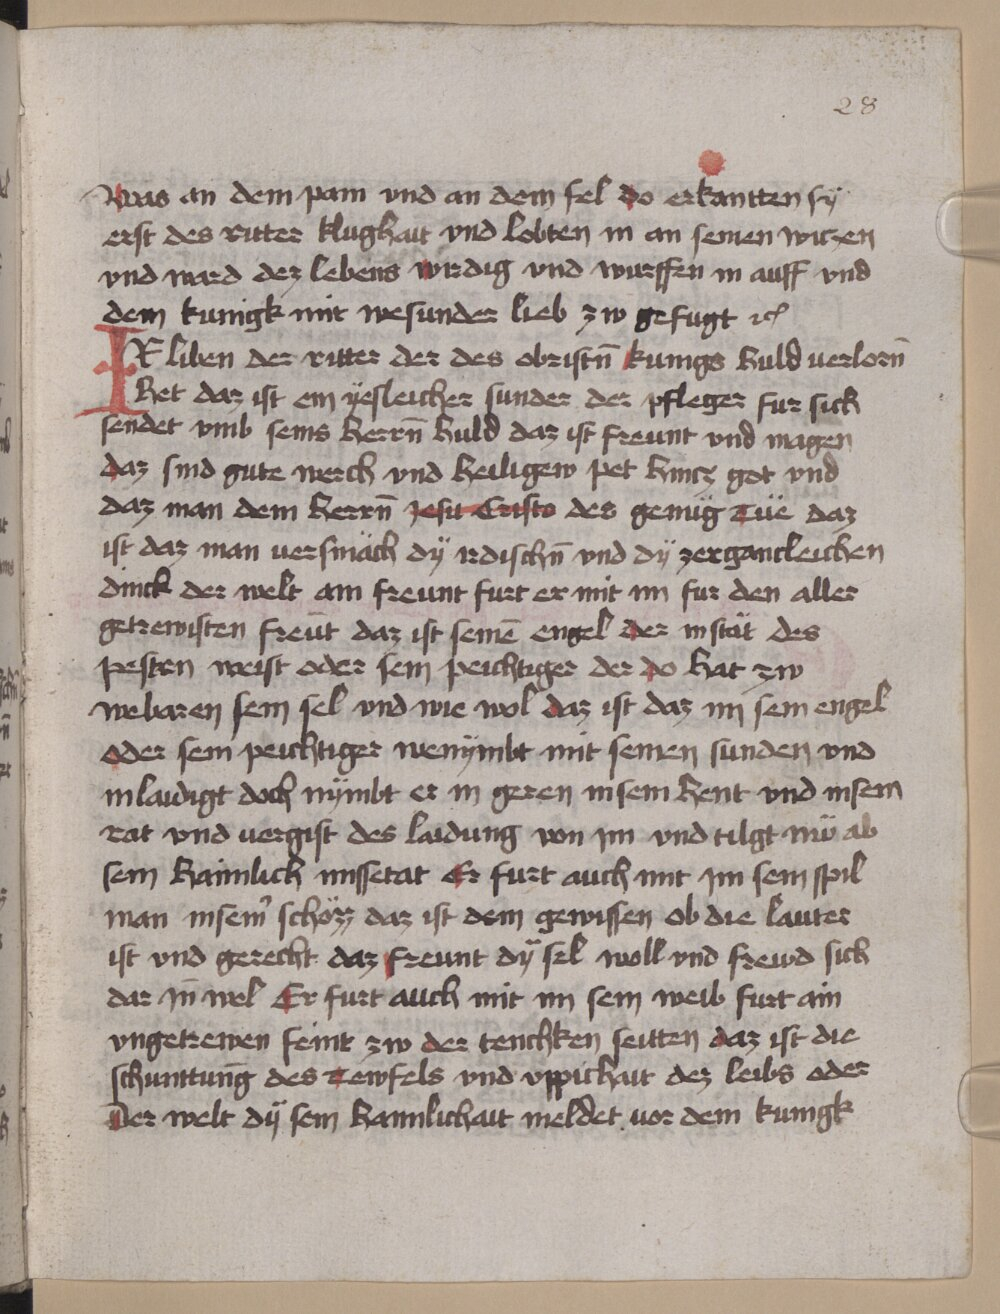 28
Was an dem pam vnd an dem fel do erkantten sÿ
erst des ritter klughait vnd lobten in an seinen wiczen
vnd ward dez lebens wirdig vnd wurffen in auff vnd
dem kunigk mit wesunder lieb zw gefugt ꝛc
IR liben der ritter der des obristn̄ kunigs huld verlorn̄
het daz ist ein ÿesleicher sunder der pfleger fur sich
sendet vmb seins herrn̄ huld daz ist freunt vnd magen
daz sind gute werch vnd heiligew pet hincz got vnd
daz man dem herrn̄ jesu Cristo des genüg Tüe daz
ist daz man versmäch dÿ irdischn̄ vnd dÿ zergancleichen
dinck der welt ain freunt furt er mit im fur den aller
getrewisten freūt daz ist seinē engel der in stät des
pesten weist oder sein peichtiger der do hat zw
webaren sein sel vnd wie wol daz ist daz im sein engel
oder sein peichtiger wenÿmbt mit seinen sunden vnd
in laidigt doch nÿmbt er in geren in sein hent vnd in sein
rat vnd vergist des laidung von im vnd tilgt ab
sein haimlich missetat Er furt auch mit jm sein spil
man in seim̄ schözz daz ist dein gewissen ob die lauter
ist vnd gerecht daz freunt dÿ sel woll vnd frewd sich
dar jn̄ wel Er furt auch mit im sein weib furt ain
vngetrewen feint zw der tenchken seitten daz ist die
schunttung des Tewfels vnd vppichait dez leibs oder
Der welt dÿ sein haimlichait meldet vor dem kunigk